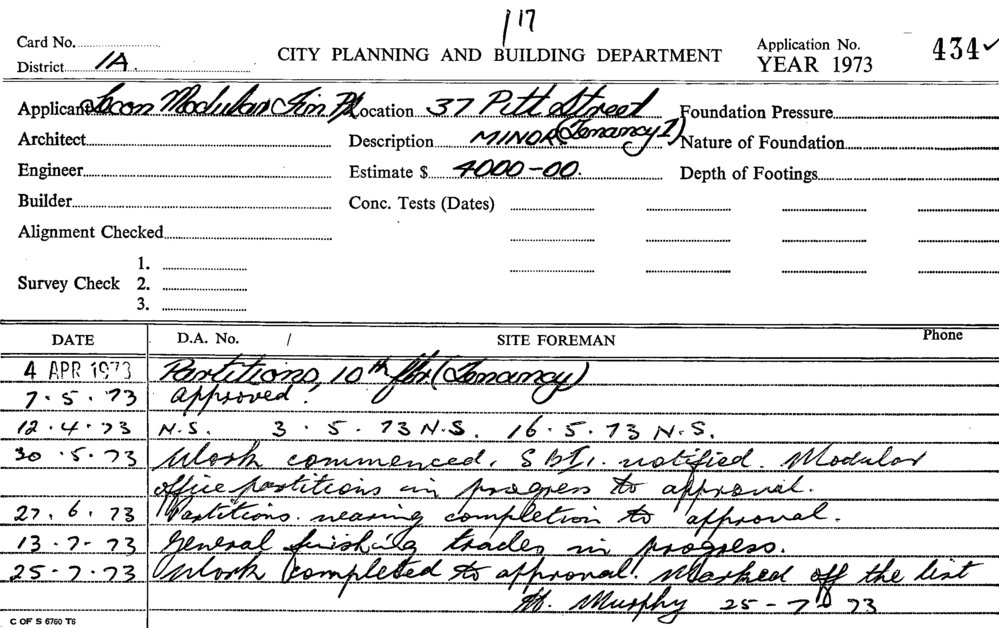 /17
Card No.
District 1A
CITY PLANNING AND BUILDING DEPARTMENT
Application No. 434 ✓
YEAR 1973
Applicant Modular Location 37 Pitt Street Foundation Pressure
Architect Description MINOR (Tenancy 1) Nature of Foundation
Engineer Estimate $ 4000-00. Depth of Footings
Builder Conc. Tests (Dates)
Alignment Checked
Survey Check 1.
2.
3.
DATE D.A. No. / SITE FOREMAN Phone
4 APR 1973 Partitions, 10th flr (Tenancy)
7.5.73 Approved.
12.4.73 N.S. 3.5.73 N.S. 16.5.73 N.S.
30.5.73 Work commenced. notified. Modular
office partitions in progress to approval.
27.6.73 Partitions nearing completion to approval.
13-7-73 General finishing trades in progress.
25-7-73 Work completed to approval. Marked off the list
Murphy 25-7-73
C OF S 6760 T6